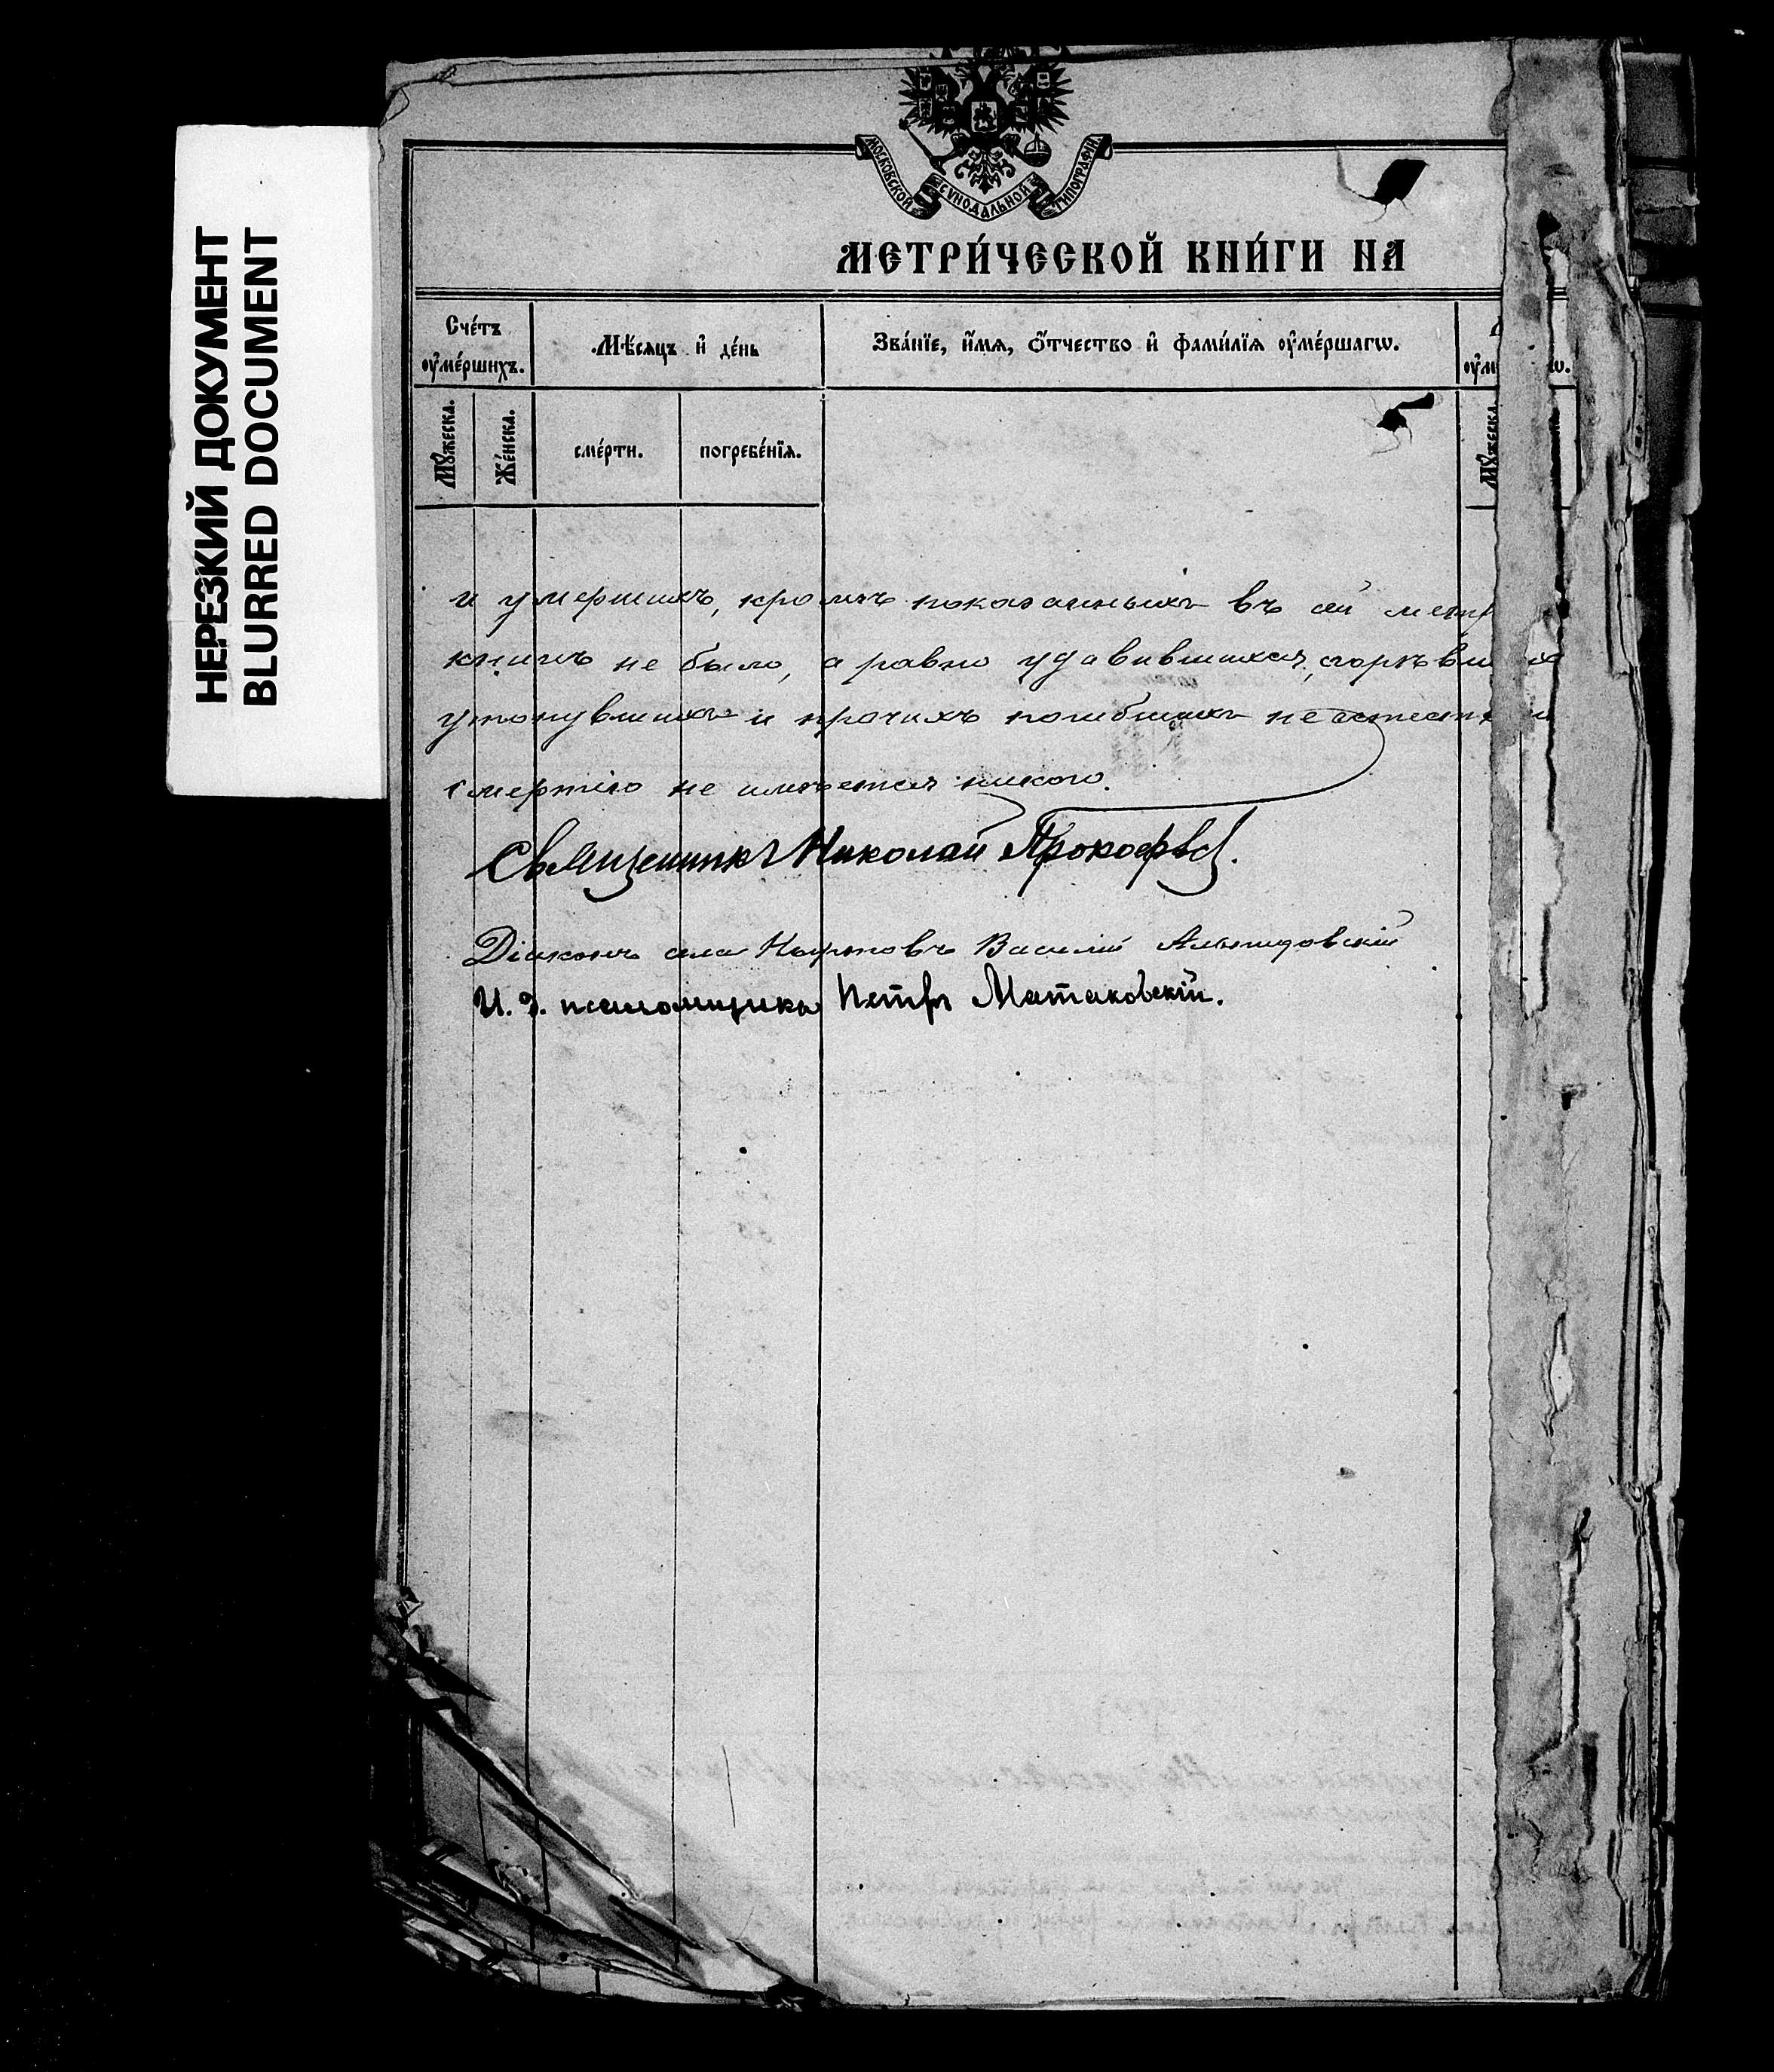 НЕРЕЗКИЙ ДОКУМЕНТ
BLURRED DOCUMENT
МОСКОВСКОЙ СѴНОДАЛЬНОЙ ТИПОГРАФІИ
МЕТРИ́ЧЕСКОЙ КНИ́ГИ НА
Сче́тъ ᲂумéршихъ.
Мѣ́сяцъ и де́нь
Зва́нїе, и́мя, Ѻтчество и фами́лїя ᲂумéршагѡ.
Мꙋжеска.
Же́нска.
сме́рти.
погребе́нїя.
Мꙋжеска.
и умершихъ, кромѣ показанныхъ въ сей
книгѣ не было, а равно удавившихся,
утонувшихъ и прочихъ погибшихъ
смертію не имѣется никого.
Священникъ Николай Прокофьев.
Діаконъ села Василій
И. д. псаломщика Петръ Матаковскій.